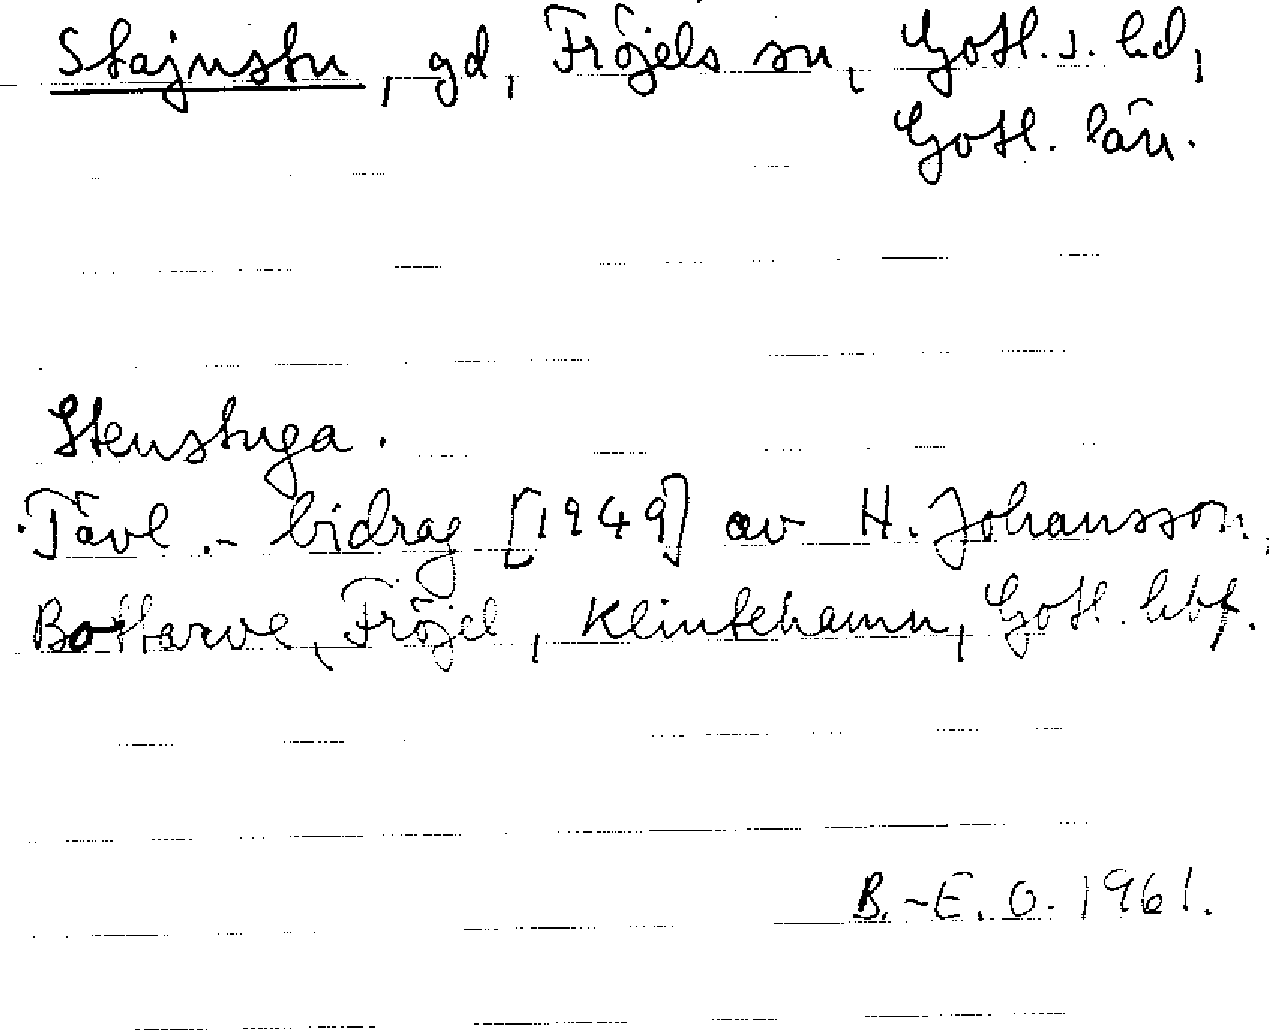 Stajnstu, gd, Fröjels sn, Gotl. s. hd,
Gotl. län.
Stenstuga.
Tävl.- bidrag [1949] av H. Johansson,
Bottarve, Fröjel, Klintehamn, Gotl. hbf.
B.-E. O. 1961.